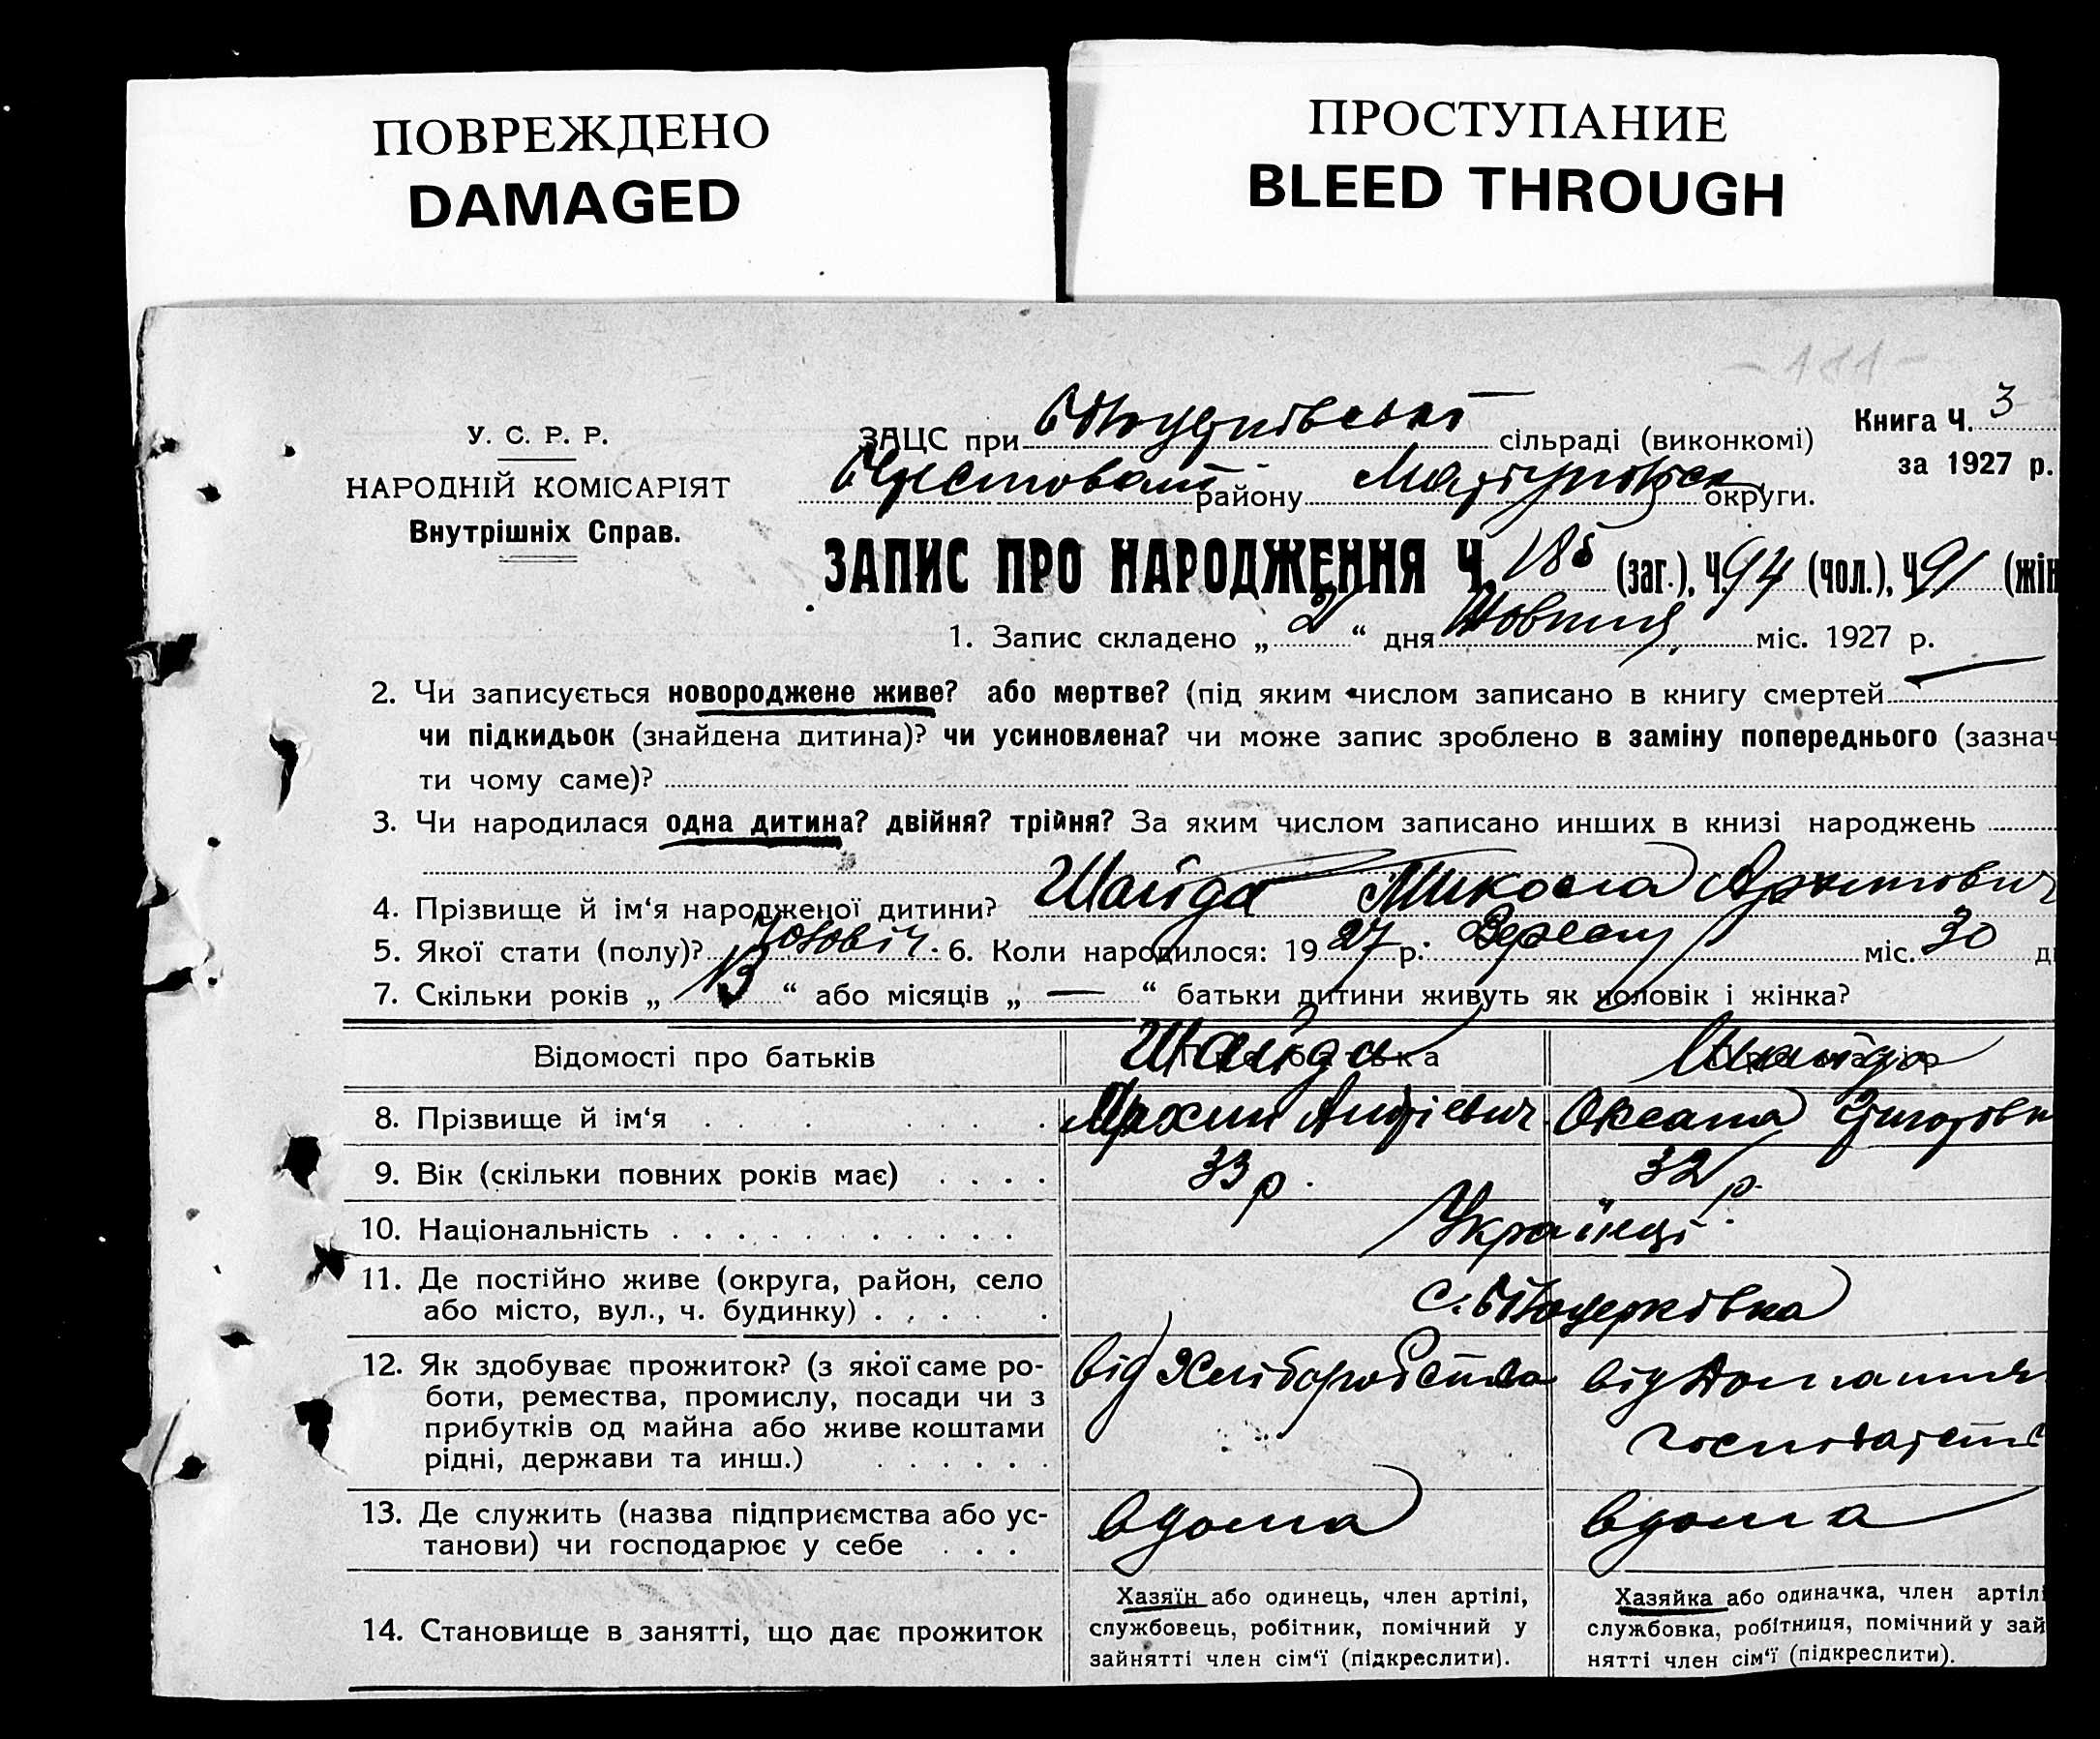 ПОВРЕЖДЕНО
DAMAGED
ПРОСТУПАНИЕ
BLEED THROUGH
У. С. Р. Р.
НАРОДНІЙ КОМІСАРІЯТ
Внутрішніх Справ.
ЗАЦС при сільраді (виконкомі)
району округи.
Книга Ч. 3
за 1927 р.
ЗАПИС ПРО НАРОДЖЕННЯ Ч. 185 (заг.), Ч. 94 (чол.), Ч. 91 (жін
1. Запис складено „ 2 “ дня Жовтня міс. 1927 р.
2. Чи записується новороджене живе? або мертве? (під яким числом записано в книгу смертей —
чи підкидьок (знайдена дитина)? чи усиновлена? чи може запис зроблено в заміну попереднього (зазнач
ти чому саме)?
3. Чи народилася одна дитина? двійня? трійня? За яким числом записано инших в книзі народжень
4. Прізвище й ім‘я народженої дитини? Шайда Микола
5. Якої стати (полу)? чоловіч. 6. Коли народилося: 1927 р. Вересня міс. 30 д
7. Скільки років „ 13 “ або місяців „ — “ батьки дитини живуть як чоловік і жінка?
Відомості про батьків Про батька Про матір
Шайда Шайда
8. Прізвище й ім‘я Андрієвич Оксана
9. Вік (скільки повних років має) 33 р. 32 р.
10. Національність Українці
11. Де постійно живе (округа, район, село
або місто, вул., ч. будинку)
12. Як здобуває прожиток? (з якої саме ро-
боти, ремества, промислу, посади чи з
прибутків од майна або живе коштами
рідні, держави та инш.)
від Хліборобства
від Домашня
господарств
13. Де служить (назва підприємства або ус-
танови) чи господарює у себе
вдома вдома
14. Становище в занятті, що дає прожиток
Хазяїн або одинець, член артілі,
службовець, робітник, помічний у
зайнятті член сім‘ї (підкреслити).
Хазяйка або одиначка, член артіл
службовка, робітниця, помічний у зай
нятті член сім‘ї (підкреслити).